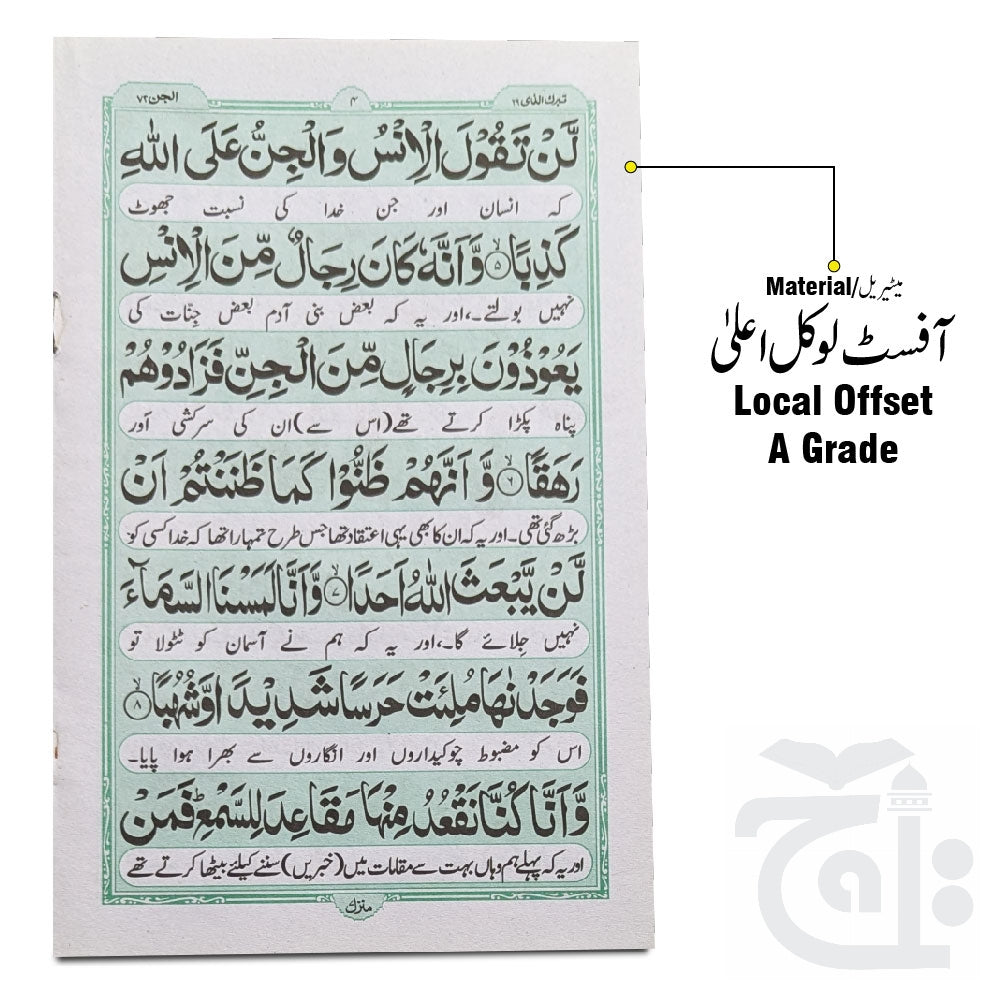 تبرك الذی ۲۹
۴
الجن ۷۲
لَّنْ تَقُوْلَ الْاِنْسُ وَالْجِنُّ عَلَى اللّٰهِ
کہ انسان اور جن خدا کی نسبت جھوٹ
كَذِبًا ۙ‏﴿۵﴾ وَّاَنَّهٗ كَانَ رِجَالٌ مِّنَ الْاِنْسِ
نہیں بولتے۔،اور یہ کہ بعض بنی آدم بعض جِنّات کی
يَعُوْذُوْنَ بِرِجَالٍ مِّنَ الْجِنِّ فَزَادُوْهُمْ
پناہ پکڑا کرتے تھے(اس سے)ان کی سرکشی اور
رَهَقًا ۙ‏﴿۶﴾ وَّ اَنَّهُمْ ظَنُّوْا كَمَا ظَنَنْتُمْ اَنْ
بڑھ گئی تھی۔اور یہ کہ ان کا بھی یہی اعتقاد تھا جس طرح تمہارا تھا کہ خدا کسی کو
لَّنْ يَّبْعَثَ اللّٰهُ اَحَدًا ۙ‏﴿۷﴾ وَّاَنَّا لَمَسْنَا السَّمَآءَ
نہیں جِلائے گا۔،اور یہ کہ ہم نے آسمان کو ٹٹولا تو
فَوَجَدْنٰهَا مُلِئَتْ حَرَسًا شَدِيْدًا وَّشُهُبًا ۙ‏﴿۸﴾
اس کو مضبوط چوکیداروں اور انگاروں سے بھرا ہوا پایا۔
وَّاَنَّا كُنَّا نَقْعُدُ مِنْهَا مَقَاعِدَ لِلسَّمْعِ ؕ فَمَنْ
اور یہ کہ پہلے ہم وہاں بہت سے مقامات میں(خبریں)سننے کیلئے بیٹھا کرتے تھے
Material/میٹیریل
آفسٹ لوکل اعلیٰ
Local Offset
A Grade